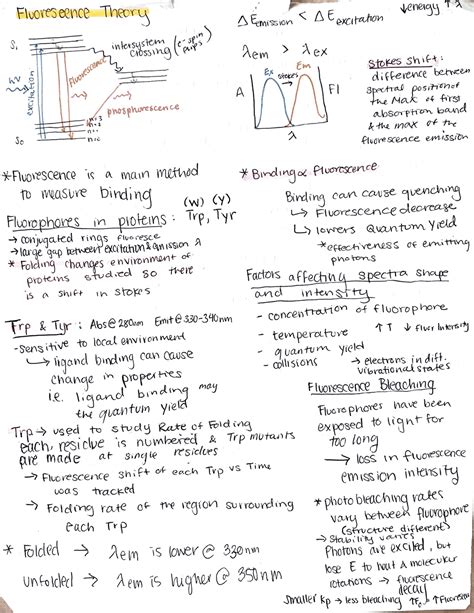 Fluorescence Theory
S₁
intersystem
crossing (e- spin
flips)
hν
excitation
Fluorescence
phosphorescence
S₀
n=3
n=2
n=1
n=0
ΔEmission < ΔExcitation
↓energy ↑λ
λem > λex
Ex
stokes
Em
A
FI
λ
Stokes shift:
difference between
spectral position of
the Max of first
absorption band
& the max of the
fluorescence emission
*Fluorescence is a main method
to measure binding
Fluorophores in proteins: Trp, Tyr
(W) (Y)
→conjugated rings fluoresce
→large gap between excitation & emission λ
* Folding changes environment of
proteins studied so there
is a shift in stokes
*Binding ∝ fluorescence
Binding can cause quenching
↳ Fluorescence decrease
↳ lowers Quantum Yield
*effectiveness of emitting
photons
Factors affecting spectra shape
and intensity
- concentration of fluorophore
- temperature ↑T ↓Fluor Intensity
- quantum yield
- collisions → electrons in diff.
vibrational states
Trp & Tyr: Abs@280nm Emit@330-340nm
-sensitive to local environment
↳ ligand binding can cause
change in properties
i.e. ligand binding may
the quantum yield
Trp → used to study Rate of Folding
each residue is numbered & Trp mutants
are made at single residues
→ Fluorescence shift of each Trp vs Time
was tracked
→ Folding rate of the region surrounding
each Trp
* Folded → λem is lower @ 330nm
unfolded → λem is higher @ 350nm
Fluorescence Bleaching
Fluorophores have been
exposed to light for
too long
→ loss in fluorescence
emission intensity
*photobleaching rates
vary between fluorophore
(structure different)
→ Stability varies
Photons are excited, but
lose E to heat & molecular
rotations → fluorescence
decay
Smaller kp → less bleaching